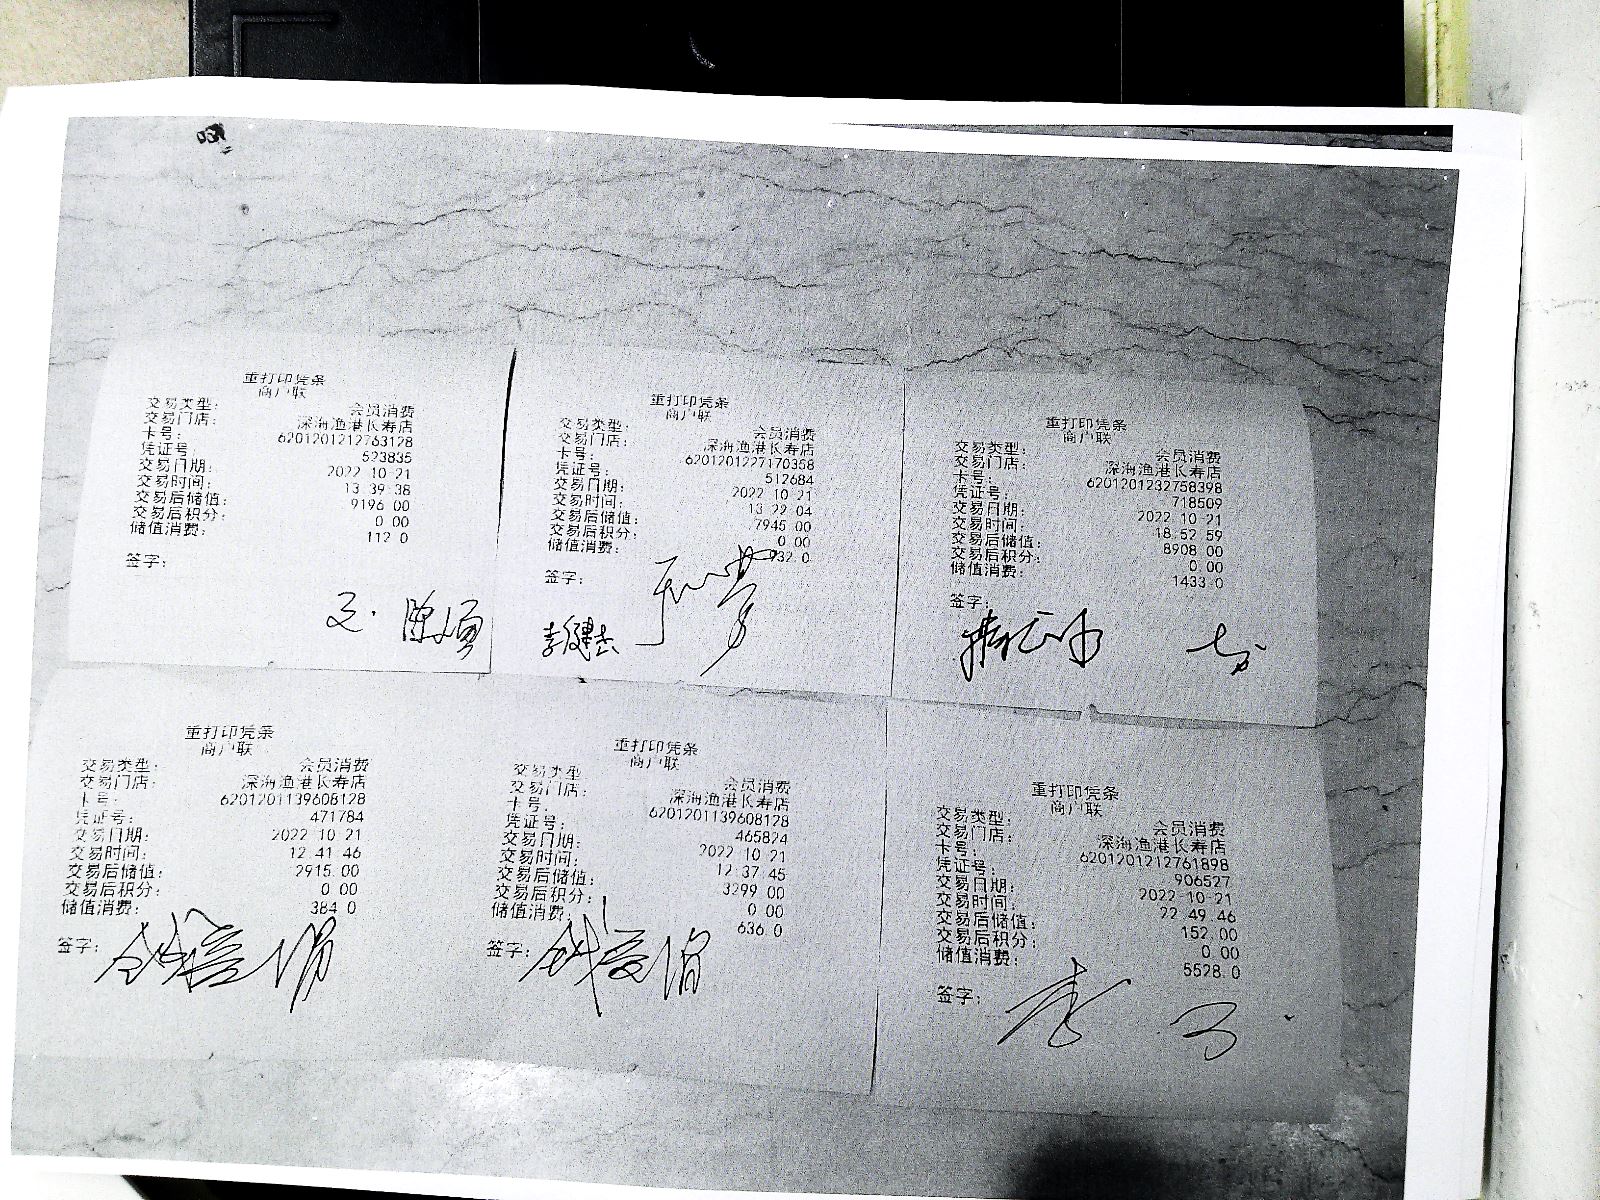 重打印凭条
商户联
交易类型: 会员消费
交易门店: 深海渔港长寿店
卡号: 6201201212763128
凭证号: 523835
交易日期: 2022 10 21
交易时间: 13 39 38
交易后储值: 9196 00
交易后积分: 0 00
储值消费: 112 0
签字:
重打印凭条
商户联
交易类型: 会员消费
交易门店: 深海渔港长寿店
卡号: 6201201227170358
凭证号: 512684
交易日期: 2022 10 21
交易时间: 13 22 04
交易后储值: 7945 00
交易后积分: 0 00
储值消费: 932 0
签字:
李健杰
重打印凭条
商户联
交易类型: 会员消费
交易门店: 深海渔港长寿店
卡号: 6201201232758398
凭证号: 718509
交易日期: 2022 10 21
交易时间: 18 52 59
交易后储值: 8908 00
交易后积分: 0 00
储值消费: 1433 0
签字:
重打印凭条
商户联
交易类型: 会员消费
交易门店: 深海渔港长寿店
卡号: 6201201139608128
凭证号: 471784
交易日期: 2022 10 21
交易时间: 12 41 46
交易后储值: 2915 00
交易后积分: 0 00
储值消费: 384 0
签字:
重打印凭条
商户联
交易类型 会员消费
交易门店: 深海渔港长寿店
卡号: 6201201139608128
凭证号: 465824
交易日期: 2022 10 21
交易时间: 12 37 45
交易后储值: 3299 00
交易后积分: 0 00
储值消费: 636 0
签字:
重打印凭条
商户联
交易类型: 会员消费
交易门店: 深海渔港长寿店
卡号: 6201201212761898
凭证号: 906527
交易日期: 2022-10-21
交易时间: 22 49 46
交易后储值: 152 00
交易后积分: 0 00
储值消费: 5528.0
签字: